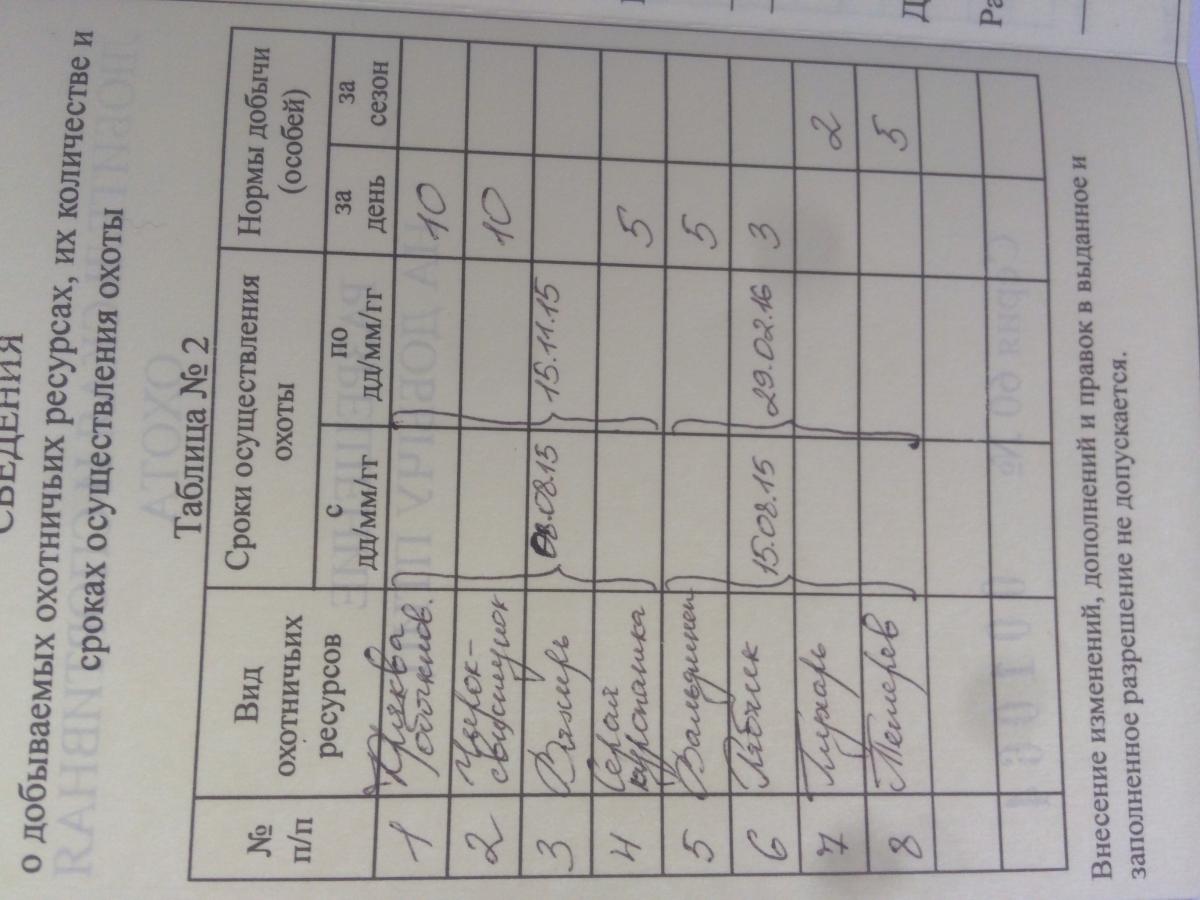 СВЕДЕНИЯ
о добываемых охотничьих ресурсах, их количестве и
сроках осуществления охоты
Таблица № 2
№ п/п | Вид охотничьих ресурсов | Сроки осуществления охоты | Нормы добычи (особей)
с дд/мм/гг | по дд/мм/гг | за день | за сезон
1 | Кряква | 10
2 | Чирок-свистунок | 10
3 | Вяхирь | 08.08.15 | 15.11.15
4 | Серая куропатка | 5
5 | Вальдшнеп | 5
6 | Рябчик | 15.08.15 | 29.02.16 | 3
7 | Глухарь | 2
8 | Тетерев | 5
Внесение изменений, дополнений и правок в выданное и
заполненное разрешение не допускается.